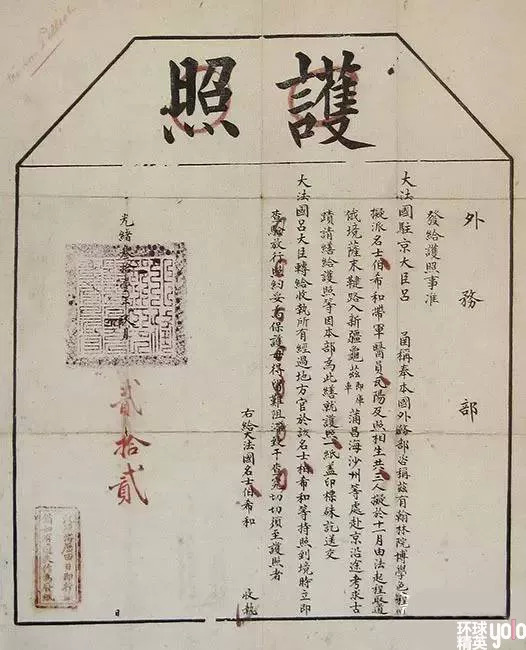 護照
外務部
發給護照事准
大法國駐京大臣呂 函稱奉本國外務部咨稱茲有翰林院博學
擬派名士伯希和帶軍醫員瓦陽及照相生共三人擬於十一月由法起程取道
俄境薩末鞬路入新疆龜茲即庫車蒲昌海沙州等處赴京沿途考求古
蹟請繕給護照等因本部為此繕就護照一紙蓋印標硃訖送交
大法國呂大臣轉給收執所有經過地方官於該名士伯希和等持照到境時立即
查驗放行照約妥為保護毋得留難阻滯致干查究切切須至護照者
右給大法國名士伯希和 收執
光緒叁拾壹年 月
貳拾貳
日
环球精英 yolo